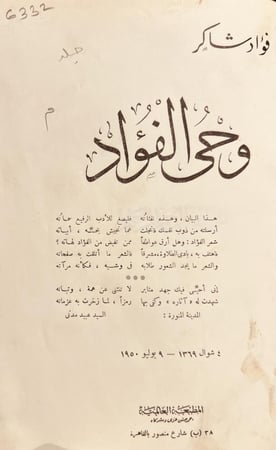 6332
فؤاد شاكر
جيلد
م
وحى الفؤاد
هذا البيان، وهذه نفثاته فليصغ للأدب الرفيع عداته
أرسلته من ذوب نفسك فانجلت عما تجيش بحسنه أبياته
شعر الفؤاد: وهل أرق عواطفاً ممن تفيض من الفؤاد لهاته ؟
فاهتف به، بادى الطلاوة، مشرقاً فالشعر ما ائتلقت به صفحاته
والشعر ما يجد الشعور طلابه فى وشيه، فكأنه مرآته
إنى أحيى فيك جهد مثابر لا تنثنى عن همة، وثباته
شهدت له «آثاره» وكفى بها رمزاً، لما زخرت به عزماته
المدينة المنورة : السيد عبيد مدنى
٤ شوال ١٣٦٩ — ٩ يوليو ١٩٥٠
المطبعة العالمية
٣٨ (ب) شارع منصور بالقاهرة